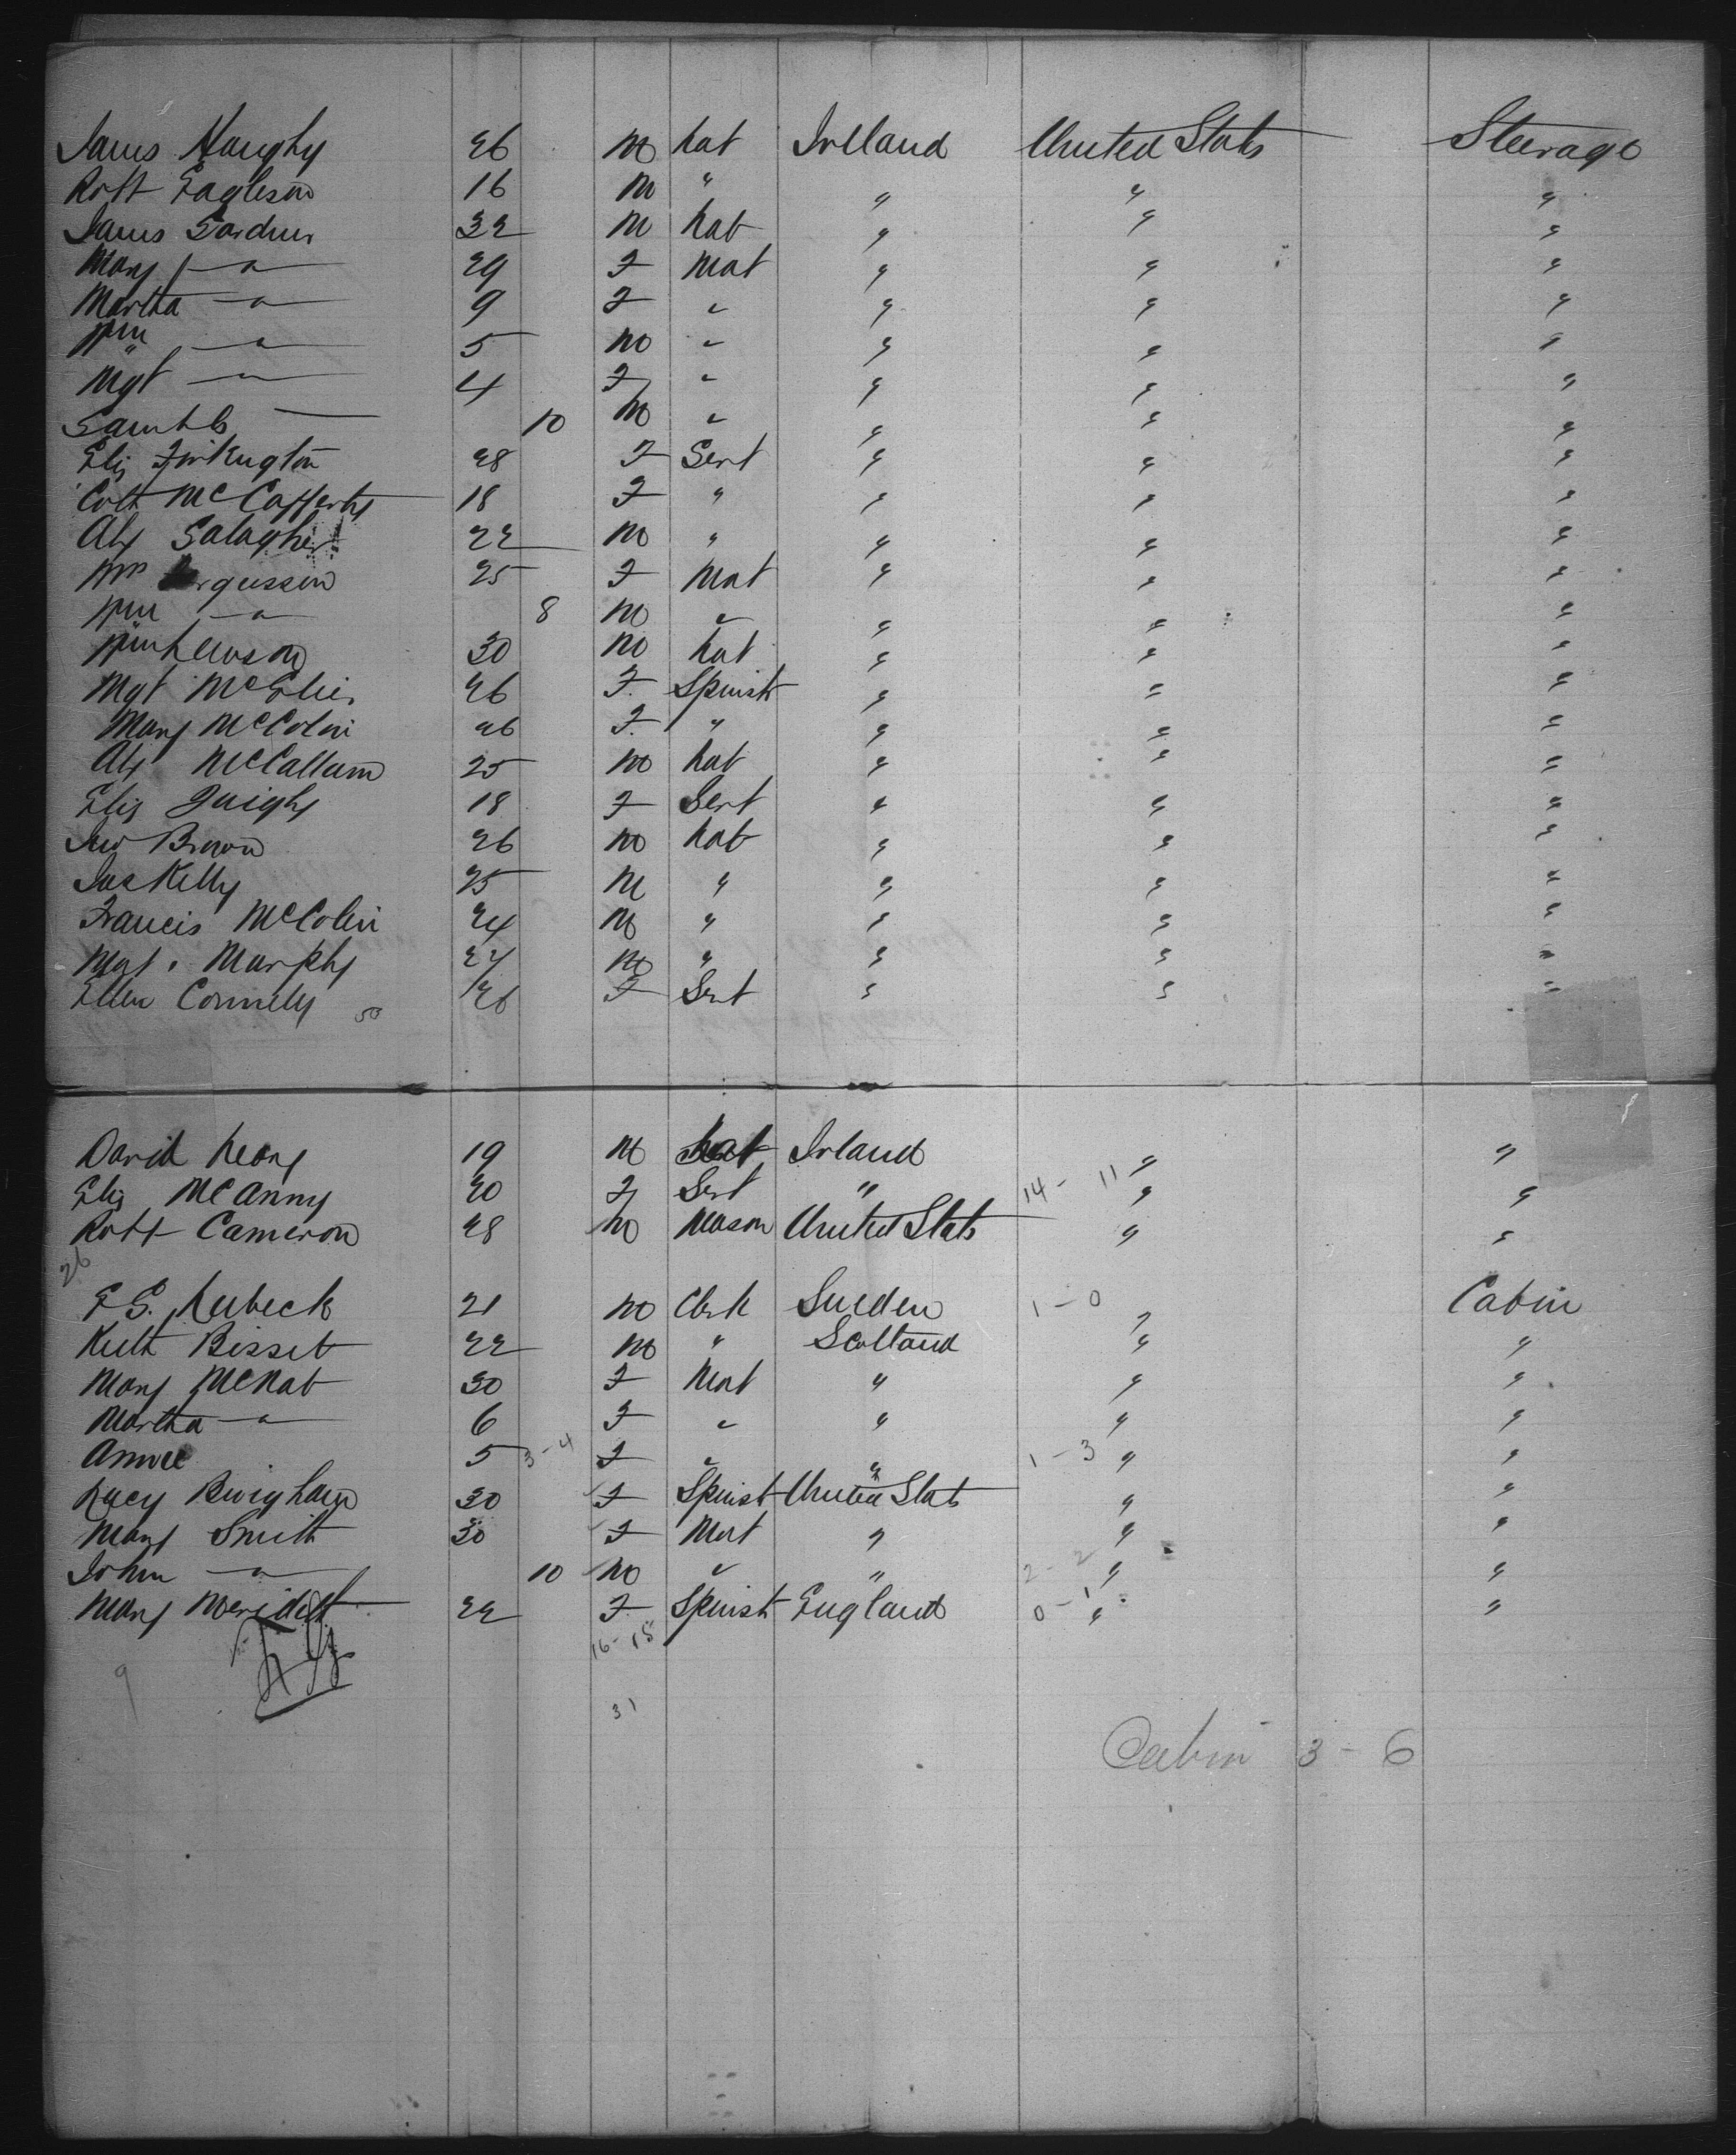 James Haughy 26 M Lab Ireland United States Steerage
Robt Eagleson 16 M " " " "
James Gardner 32 M Lab " " "
Mary — " — 29 F Mat " " "
Martha — " — 9 F " " " "
Wm — " — 5 M " " " "
Mgt — " — 4 F " " " "
Saml — 10 M " " " "
Eliz 28 F Servt " " "
Cath McCafferty 18 F " " " "
Alx Galagher 22 M " " " "
Mrs Fergusson 25 F Mat " " "
Wm — " — 8 M " " " "
Wm Lawson 30 M Lab " " "
Mgt 26 F Spinst " " "
Mary McColin 26 F " " " "
Alx McCallum 25 M Lab " " "
Eliz Quigly 18 F Servt " " "
Jno Brown 26 M Lab " " "
Jas Kelly 25 M " " " "
Francis McColin 24 M " " " "
Mgt Murphy 24 M " " " "
Ellen Connelly 26 F Servt " " "
50
David 19 M Lab Irland " "
14 - 11
Eliz McAnny 20 F Servt " " "
Robt Cameron 28 M Mason United States " "
26
21 M Clerk Sweden 1 - 0 " Cabin
Keith Bisset 22 M " Scotland " "
Mary McNab 30 F Mat " " "
Martha — " — 6 F " " " "
Annie 5 3 - 4 F " " 1 - 3 " "
Lucy Bingham 30 F Spinst United States " "
Mary Smith 30 F Mat " " "
John — " — 10 M " " 2 - 2 " "
Mary Meridith 22 F Spinst England 0 - 1 " "
16 - 15
9
31
Cabin 3 - 6